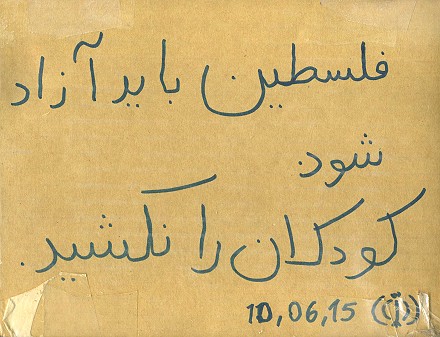 فلسطین باید آزاد
شود
کودکان را نکشید.
10,06,15